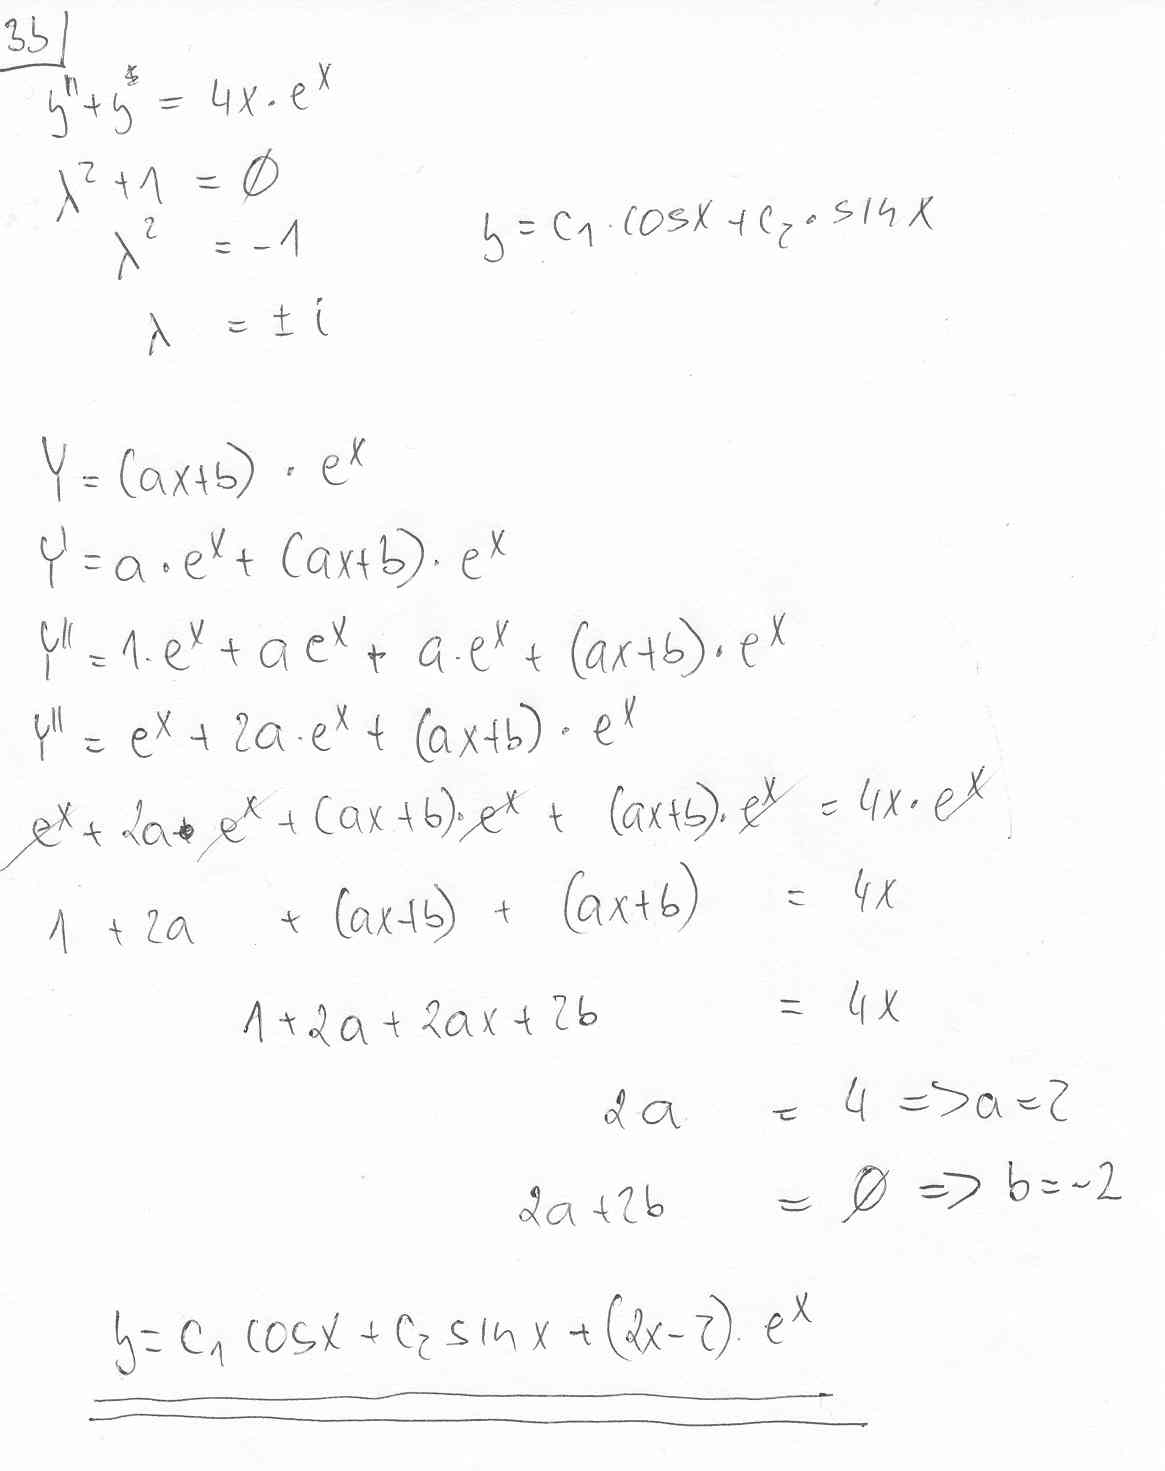 3b
y'' + y = 4x · e^x
λ² + 1 = ∅
λ² = -1
y = C₁ · cosx + C₂ · sinx
λ = ± i
Y = (ax+b) · e^x
Y' = a · e^x + (ax+b) · e^x
Y'' = 1 · e^x + a e^x + a · e^x + (ax+b) · e^x
Y'' = e^x + 2a · e^x + (ax+b) · e^x
e^x + 2a · e^x + (ax+b) · e^x + (ax+b) · e^x = 4x · e^x
1 + 2a + (ax+b) + (ax+b) = 4x
1 + 2a + 2ax + 2b = 4x
2a = 4 => a = 2
2a + 2b = ∅ => b = -2
y = C₁ cosx + C₂ sinx + (2x-2) · e^x